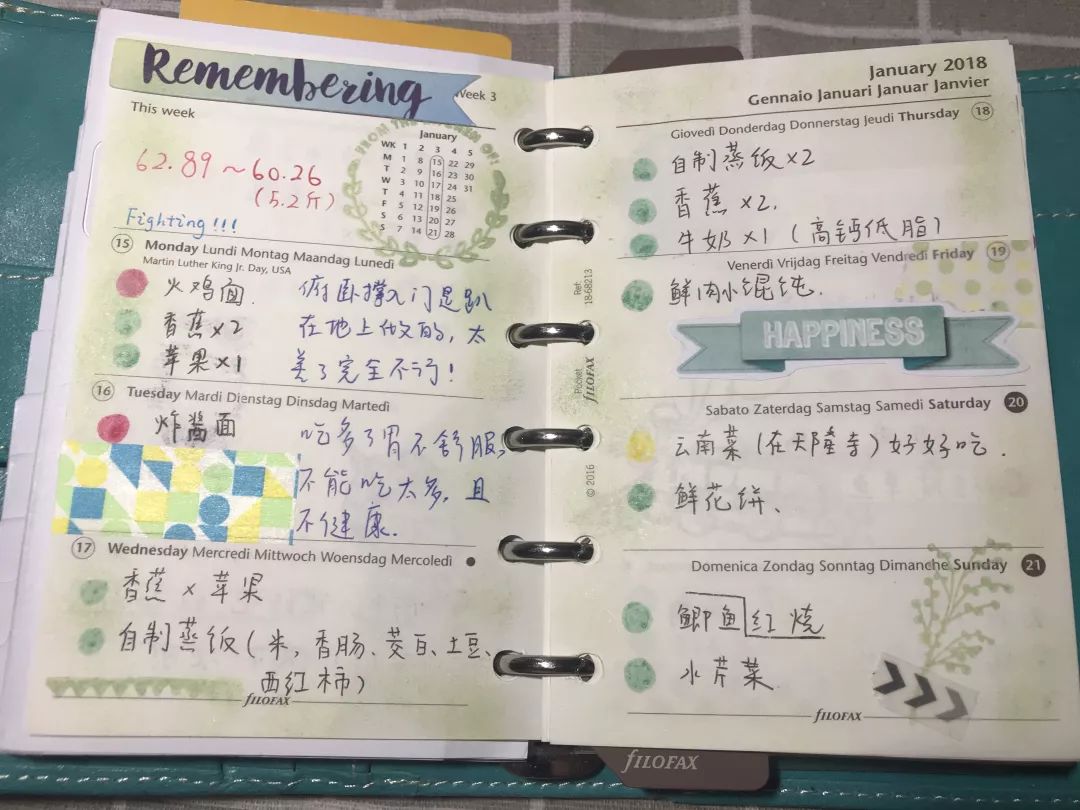 Remembering
Week 3
This week
62.89～60.26
(5.2斤)
Fighting!!!
January
WK 1 2 3 4 5
M 1 8 15 22 29
T 2 9 16 23 30
W 3 10 17 24 31
T 4 11 18 25
F 5 12 19 26
S 6 13 20 27
S 7 14 21 28
15 Monday Lundi Montag Maandag Lunedì
Martin Luther King Jr. Day, USA
火鸡面.
香蕉×2
苹果×1
俯卧撑入门是趴
在地上做的,太
差了完全不行!
16 Tuesday Mardi Dienstag Dinsdag Martedì
炸酱面
吃多了胃不舒服,
不能吃太多,且
不健康.
17 Wednesday Mercredi Mittwoch Woensdag Mercoledì
香蕉 × 苹果
自制蒸饭(米,香肠、茭白、土豆、
西红柿)
FILOFAX
Ref: 18-68213
Pocket FILOFAX
© 2016
January 2018
Gennaio Januari Januar Janvier
Giovedì Donderdag Donnerstag Jeudi Thursday 18
自制蒸饭×2
香蕉 ×2.
牛奶×1 (高钙低脂)
Venerdì Vrijdag Freitag Vendredi Friday 19
鲜肉小馄饨.
HAPPINESS
Sabato Zaterdag Samstag Samedi Saturday 20
云南菜(在天隆寺)好好吃.
鲜花饼、
Domenica Zondag Sonntag Dimanche Sunday 21
鲫鱼红烧
水芹菜
FILOFAX
FILOFAX